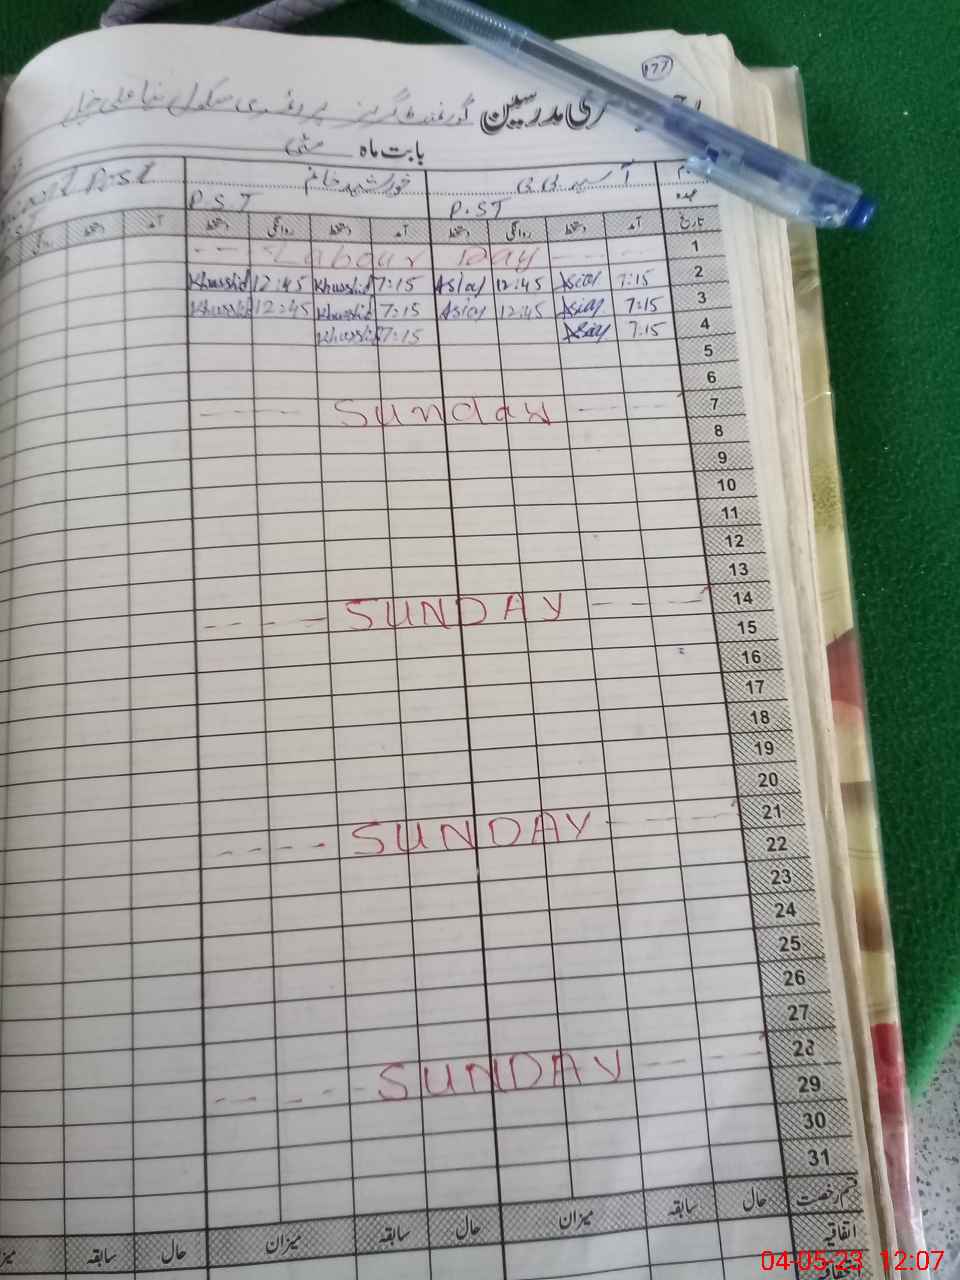 177
حاضری مدرسین گورنمنٹ گرلز پرائمری سکول
بابت ماہ مئی
آسیہ B.B خورشید خانم
عہدہ P.ST P.S.T
تاریخ آمد دستخط روانگی دستخط آمد دستخط روانگی دستخط آمد دستخط روانگی
1 Labour Day
2 7:15 Asiay 12:45 Asiay 7:15 Khurshid 12:45 Khurshid
3 7:15 Asiay 12:45 Asiay 7:15 Khurshid 12:45 Khurshid
4 7:15 Asiay 7:15 Khurshid
5
6
7 Sunday
8
9
10
11
12
13
14 SUNDAY
15
16
17
18
19
20
21 SUNDAY
22
23
24
25
26
27
28 SUNDAY
29
30
31
قسم رخصت حال سابقہ میزان حال سابقہ میزان حال سابقہ
اتفاقیہ
04-05-23 12:07